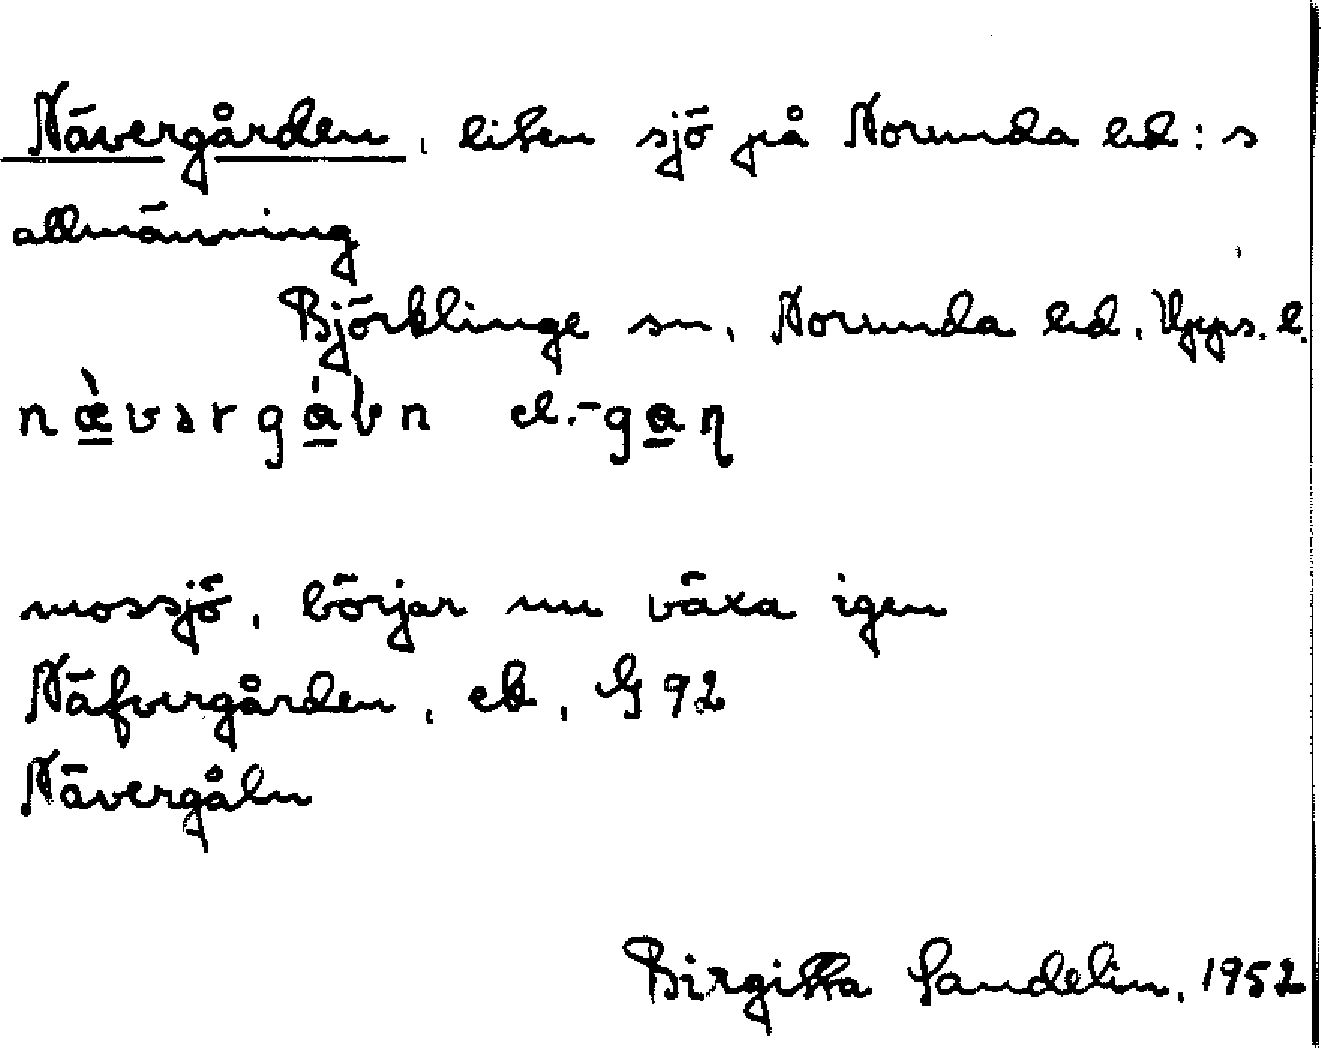 Nävergården, liten sjö på Norunda hd:s
allmänning
Björklinge sn, Norunda hd, Upps. l.
næ̀vərgán el. -gaɳ
mossjö, börjar nu växa igen
Näfvergården, ek, G 92
Nävergåln
Birgitta Sandelin, 1952